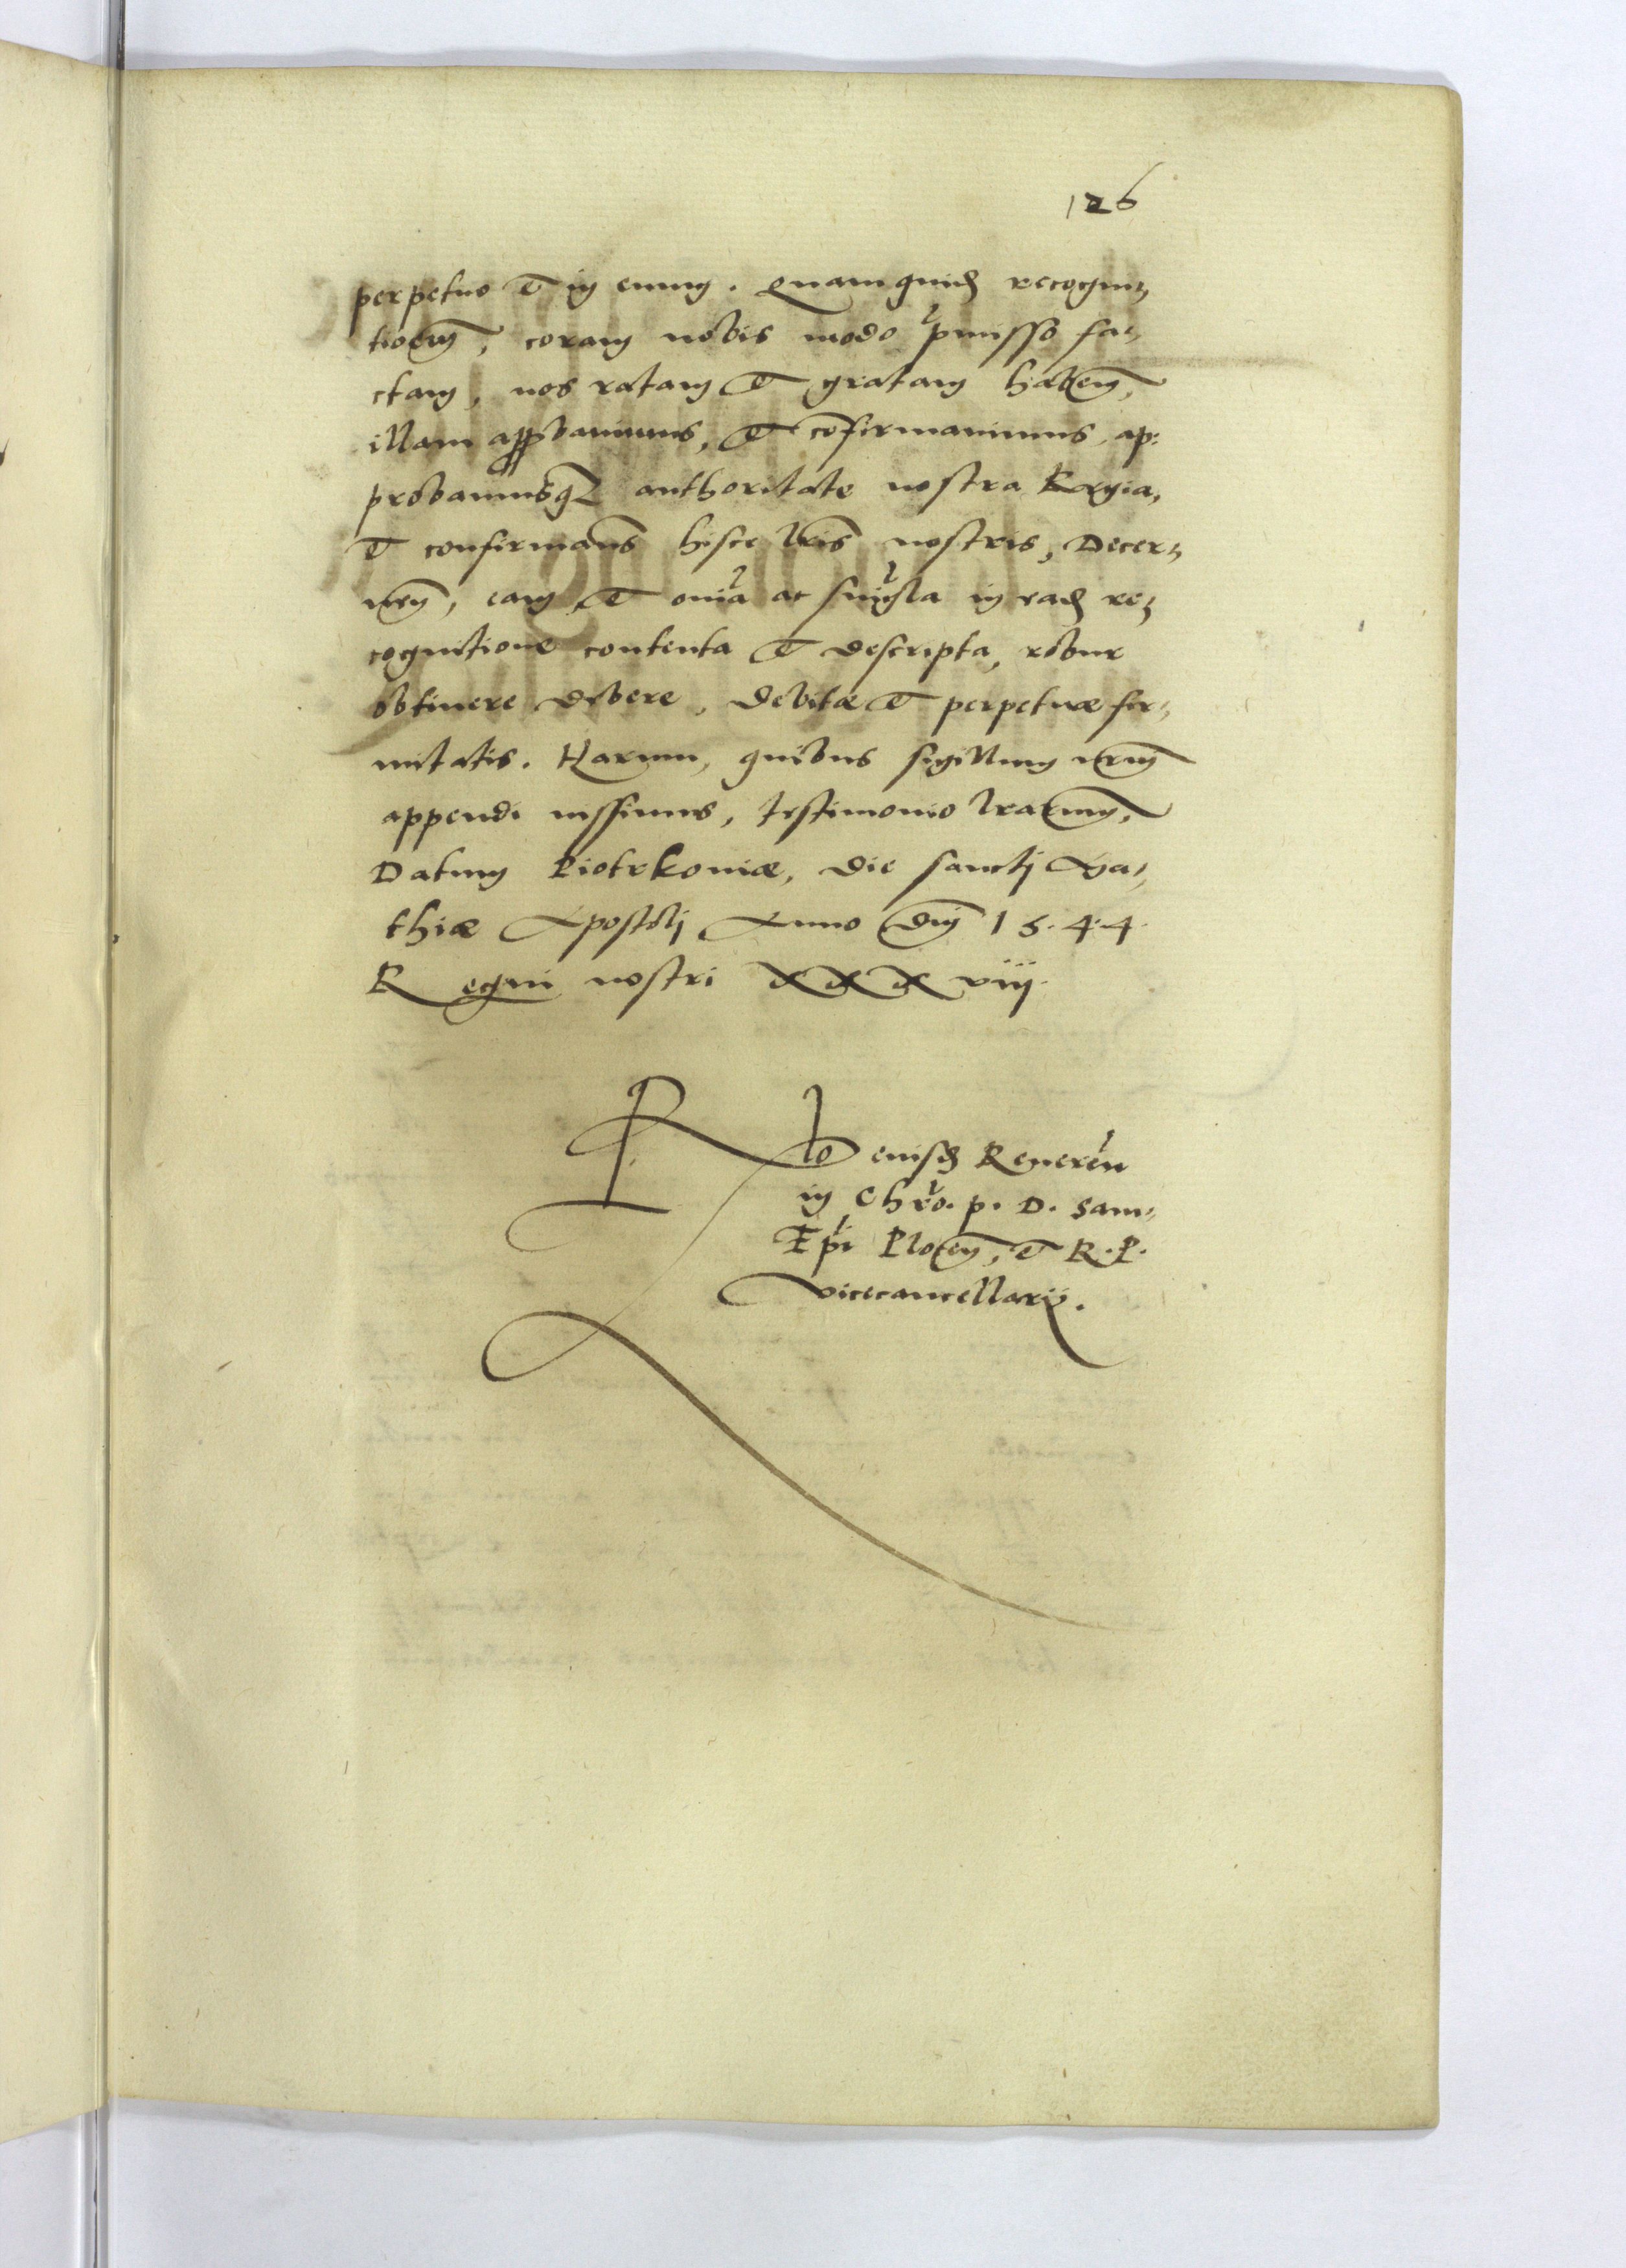 126
perpetuo et in euum. Quamquid recogni⸗
tioem, coram nobis modo pmisso fa⸗
ctam, nos ratam et gratam haben,
illam approbauimus, et cofirmauimus, ap:
probamusq authoritate nostra Regia,
et confirmans hisce lris nostris, Decer⸗
nen, eam et onia ac singla in ead re⸗
cognitione contenta et descripta, robur
obtinere debere, debitæ et perpetuæ fir⸗
mitatis. Harum, quibus sigillum nrm
appendi iussimus, testimonio lrarum,
Datum Piotrkouiæ, die sancti Ma⸗
thiæ Apostoli Anno dni 15.4.4.
Regni nostri XXXviij.
Rlo eiusd Reueren
in Chro. p. D. Sam⸗
Epi Plocen, et R. P.
vicecancellarij.